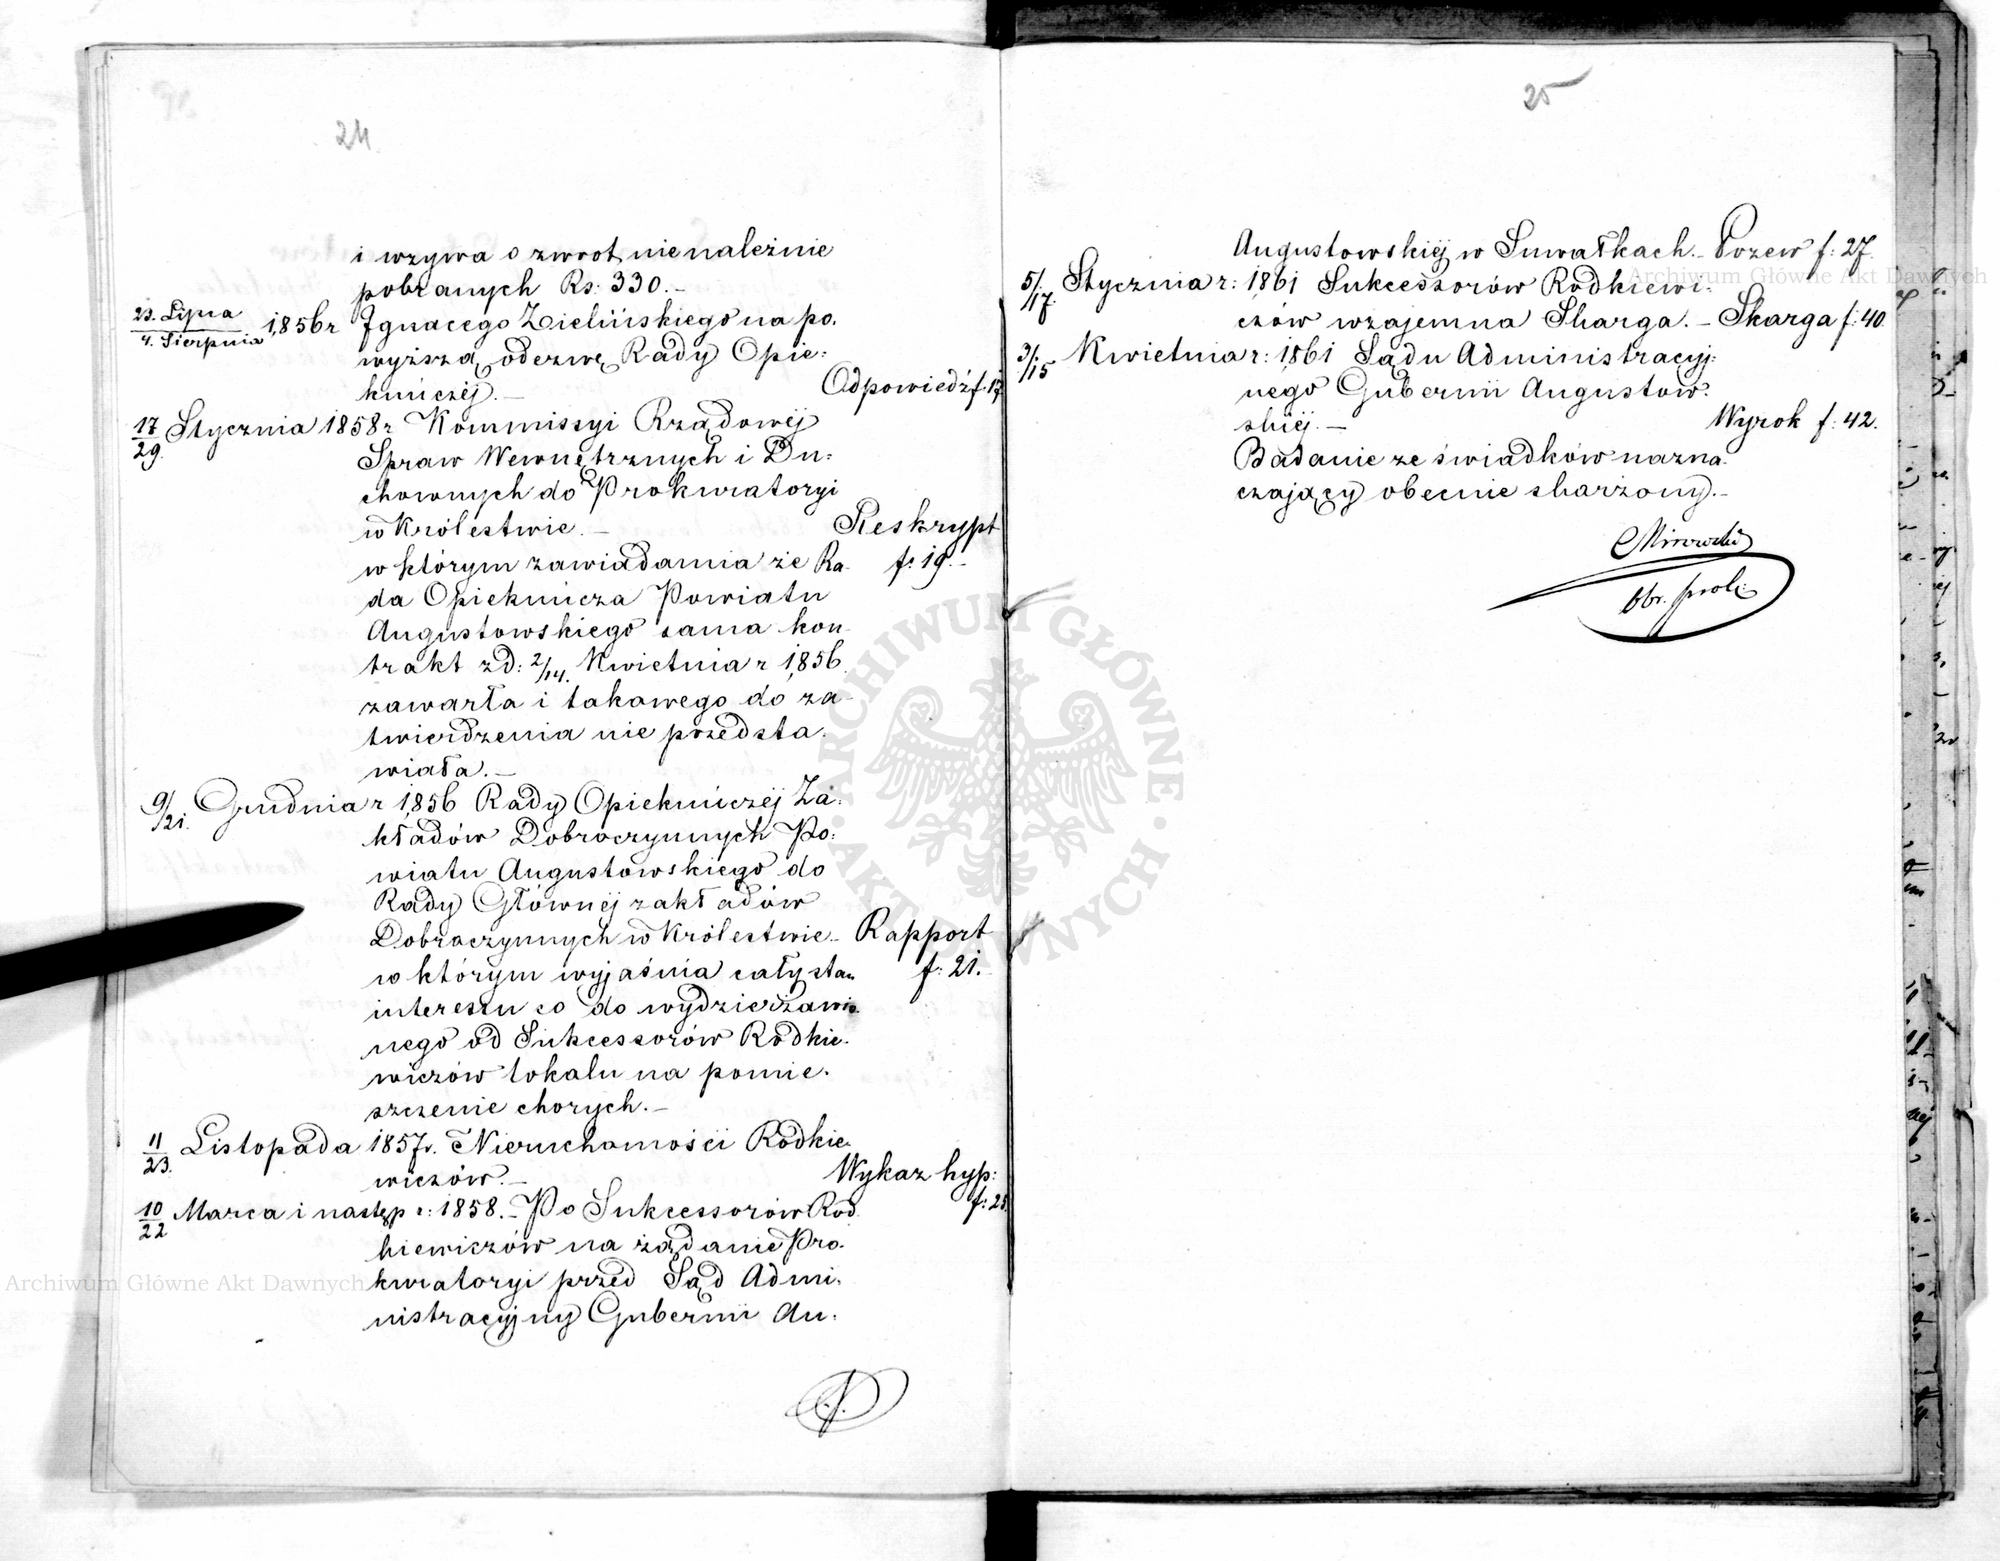 24
i wzywa o zwrot nienależnie
pobranych Rs: 330.-
23. Lipca
4. Sierpnia 1856 r Ignacego Zielińskiego na po.
wyższą odezwę Rady Opie:
kuńczéj.- Odpowiedź f. 17
17/29. Stycznia 1858 r Kommissyi Rządowéj
Spraw Wewnętrznych i Du:
chownych do Prokuratoryi
w Królestwie.- Reskrypt
w którym zawiadamia że Ra- f: 19.-
da Opiekuńcza Powiatu
Augustowskiego sama kon-
trakt z d: 2/14. Kwietnia r 1856
zawarła i takowego do za-
twierdzenia nie przedsta.
wiała.-
9/21. Grudnia r 1856 Rady Opiekuńczéj Za:
kładów Dobroczynnych Po:
wiatu Augustowskiego do
Rady Głównéj zakładów
Dobroczynnych w Królestwie- Rapport
w którym wyjaśnia cały stan f: 21.
interessu co do wydzierżawio.
nego od Sukcessorów Rodkie.
wiczów lokalu na pomie.
szczenie chorych.-
11/23. Listopada 1857 r. Nieruchomości Rodkie.
wiczów.- Wykaz hyp:
f: 25
10/22 Marca i następ r: 1858.- Po Sukcessorów Rod.
kiewiczów na żądanie Pro.
kuratoryi przed Sąd Admi.
nistracyjny Gubernii Au.
25
Augustowskiéj w Suwałkach.- Pozew f: 27.
5/17. Stycznia r: 1861 Sukcessorów Rodkiewi:
czów wzajemna Skarga.- Skarga f: 40
3/15 Kwietnia r: 1861 Sądu Administracyj:
nego Gubernii Augustow:
skiéj.- Wyrok f: 42.
Badanie ze świadków nazna.
czający obecnie skarżony.-
Obr. prok:
ARCHIWUM GŁÓWNE
AKT DAWNYCH
Archiwum Główne Akt Dawnych
Archiwum Główne Akt Dawnych